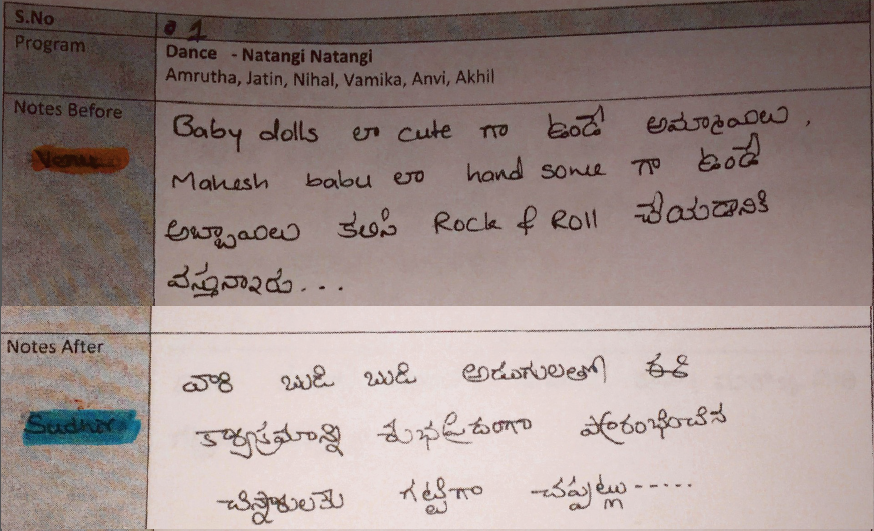 S.No
1
Program
Dance - Natangi Natangi
Amrutha, Jatin, Nihal, Vamika, Anvi, Akhil
Notes Before
Venu
Baby dolls లా cute గా ఉండే అమ్మాయిలు,
Mahesh babu లా hand some గా ఉండే
అబ్బాయిలు కలిసి Rock & Roll చేయడానికి
వస్తున్నారు...
Notes After
Sudhir
వారి బుడి బుడి అడుగులతో ఈ
కార్యక్రమాన్ని శుభప్రదంగా ప్రారంభించిన
చిన్నారులకు గట్టిగా చప్పట్లు.....